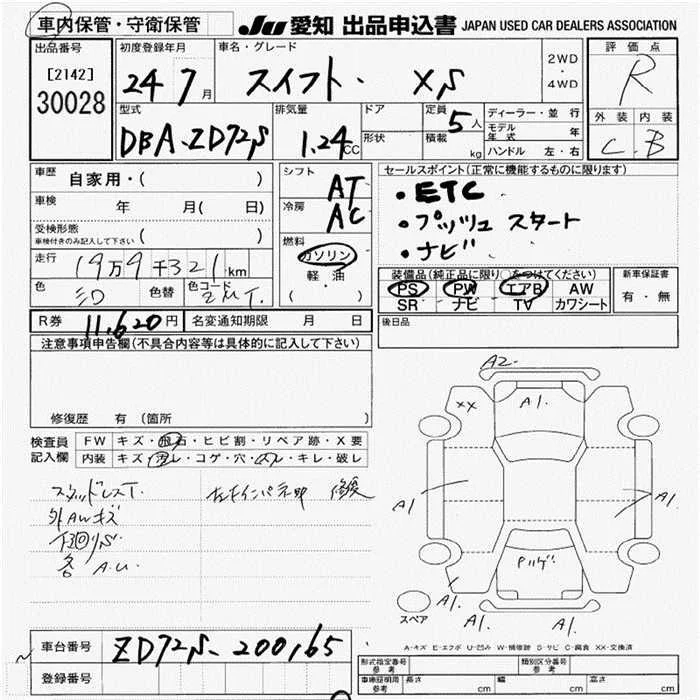 車内保管・守衛保管
JU 愛知 出品申込書 JAPAN USED CAR DEALERS ASSOCIATION
出品番号 [2142] 30028
初度登録年月 24 7月
車名・グレード スイフト・ XS
2WD・4WD
評価点 R
外装 内装
C B
型式 DBA-ZD72S
排気量 1.24 CC
ドア 形状
定員 5人
積載 kg
ディーラー・並行
モデル年式 年
ハンドル 左・右
車歴 自家用・( )
車検 年 月( 日)
受検形態 車検付きのみ記入して下さい ( )
走行 19万9千321km
色 色替 色コード ZMT.
シフト AT
冷房 AC
燃料 ガソリン
軽・油
( )
セールスポイント(正常に機能するものに限ります)
・ETC
・プッシュ スタート
・ナビ
装備品(純正品に限り○をつけてください)
PS PW エアB AW
SR ナビ TV カワシート
新車保証書
有・無
R券 11,620円
名変通知期限 月 日
後日品
注意事項申告欄(不具合内容等は具体的に記入して下さい)
修復歴 有 (箇所 )
検査員記入欄
FW キズ・飛石・ヒビ割・リペア跡・X要
内装 キズ・汚レ・コゲ・穴・スレ・キレ・破レ
スタッドレスT.
外AWキズ
下回りS
各 A.U.
修復
A2
XX
A1.
A1
A1.
Pルゲ
スペア
A1.
A1.
A1.
A-キズ E-エクボ U-凹み W-補修跡 S-サビ C-腐食 XX-交換済
車台番号 ZD72S-200165
登録番号
形式指定番号 参考
類別区分番号 参考
車検証明用 参考 長さ cm 幅 cm 高さ cm